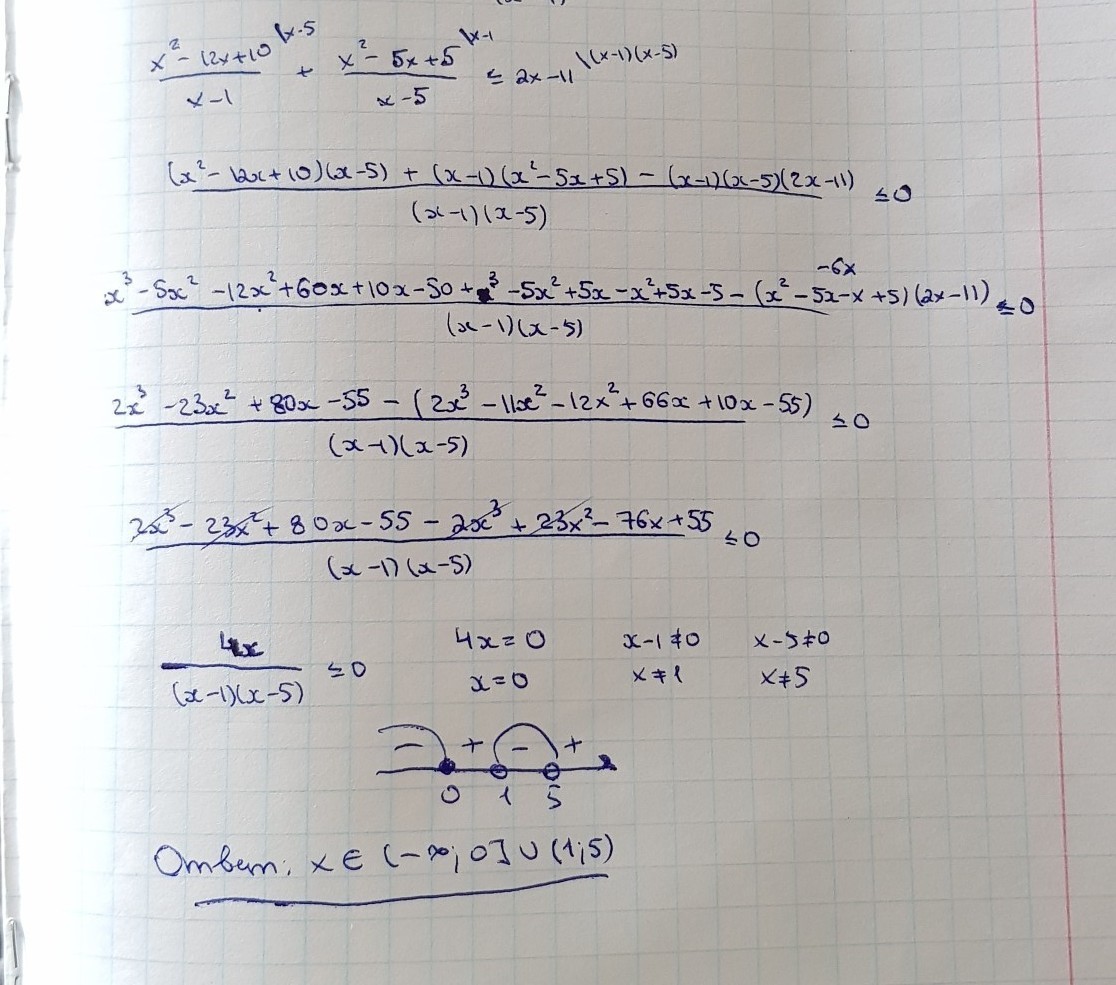 x² - 12x+10 \x-5 / x-1 + x² - 5x+5 \x-1 / x-5 ≤ 2x-11 \(x-1)(x-5)
(x² - 12x+10)(x-5) + (x-1)(x²-5x+5) - (x-1)(x-5)(2x-11) / (x-1)(x-5) ≤0
-6x
x³ -5x² -12x²+60x+10x-50+x³ -5x²+5x-x²+5x-5-(x²-5x-x+5)(2x-11) / (x-1)(x-5) ≤0
2x³ -23x² +80x-55 - (2x³ -11x² -12x²+66x+10x-55) / (x-1)(x-5) ≤0
2x³- 23x²+80x-55-2x³+23x²-76x+55 / (x-1)(x-5) ≤0
4x / (x-1)(x-5) ≤0 4x=0 x-1≠0 x-5≠0
x=0 x≠1 x≠5
- + - +
0 1 5
Ответ: x∈ (-∞; 0]∪(1;5)